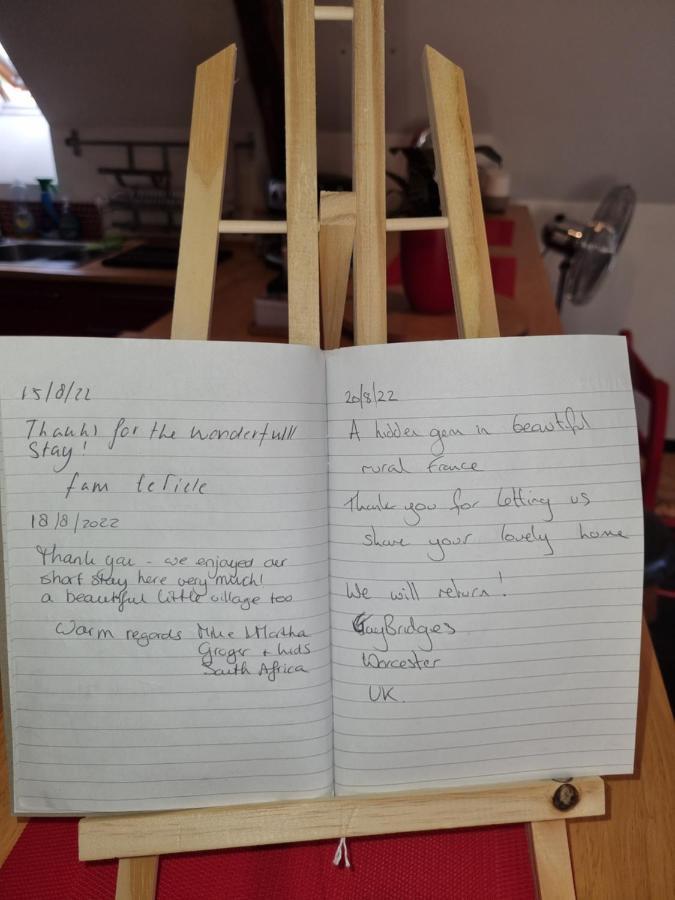 15/8/22
Thanks for the wonderfull
Stay!
fam
18/8/2022
Thank you - we enjoyed our
short stay here very much!
a beautiful little village too
Warm regards Mike & Martha
Groger + kids
South Africa
20/8/22
A hidden gem in beautiful
rural France
Thank you for letting us
share your lovely home
We will return!
Gay Bridges
Worcester
UK.